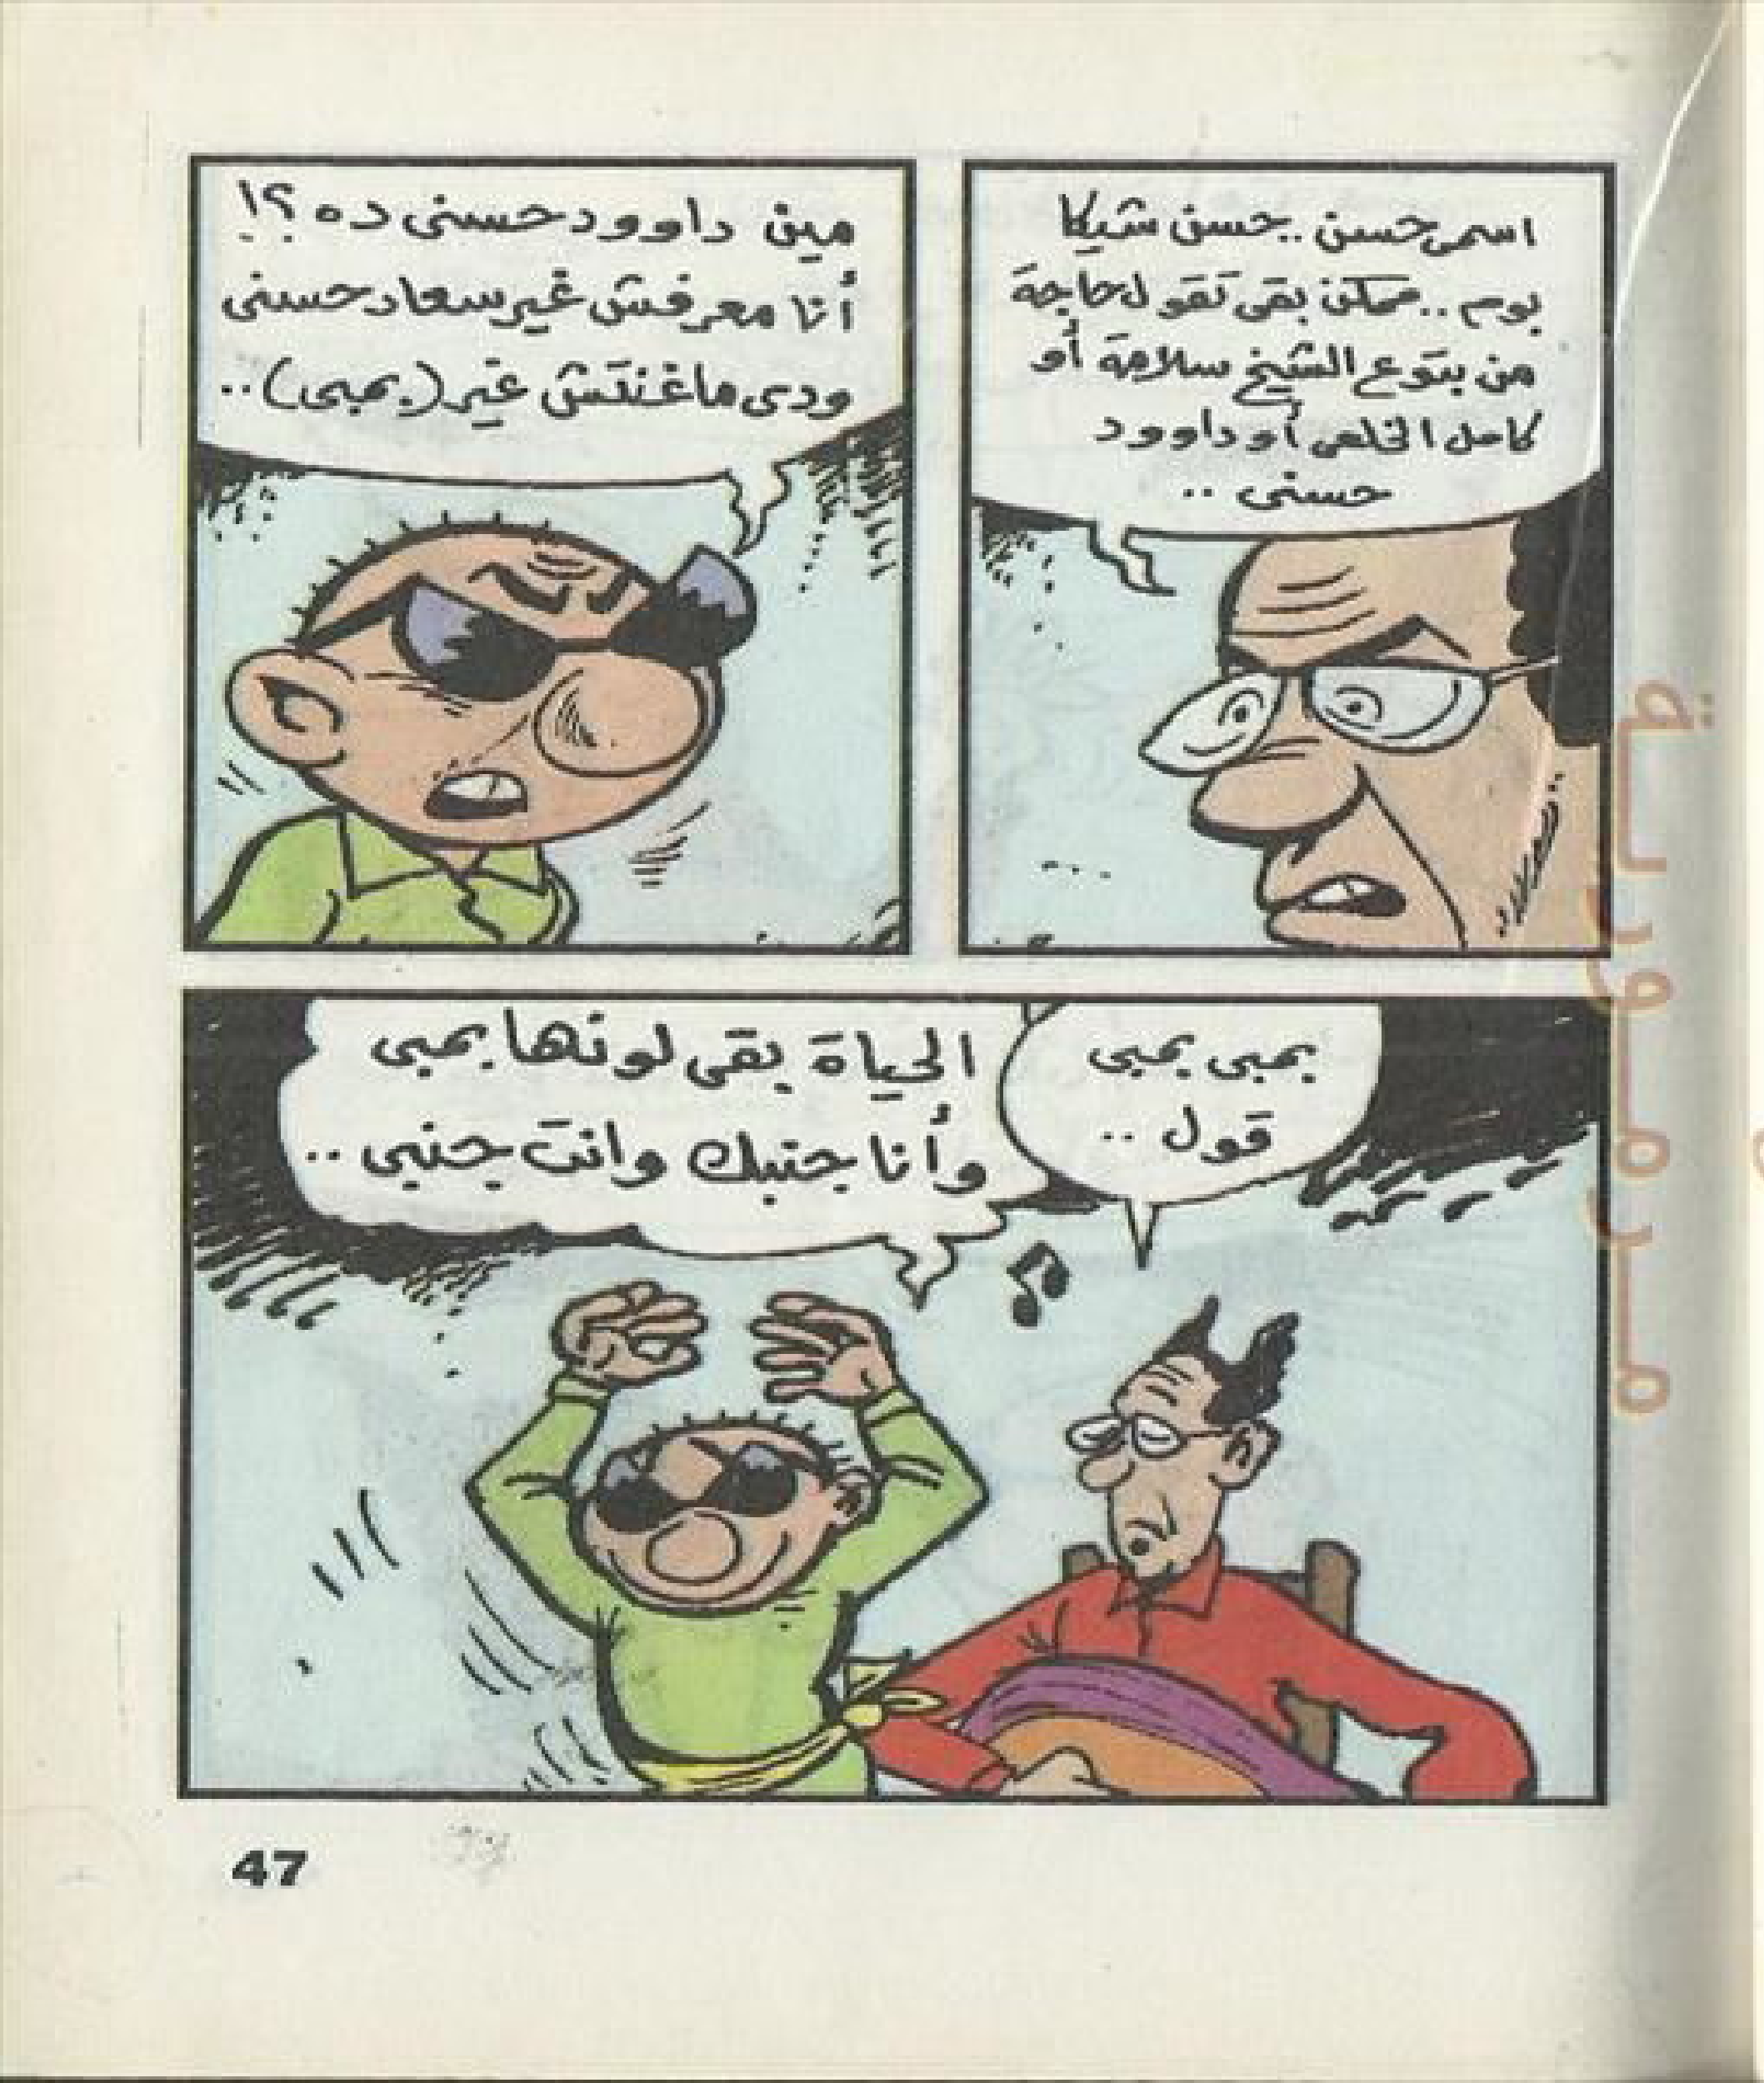 اسمى حسن .. حسن شيكا
بوم .. ممكن بقى تقول حاجة
من بتوع الشيخ سلامة أو
كامل الخلعى أو داوود
حسنى ..
مين داوود حسنى ده ؟!
أنا معرفش غير سعاد حسنى
ودى ماغنتش غير (بمبى) ..
بمبى بمبى
قول ..
الحياة بقى لونها بمبى
وأنا جنبك وانت جنبى ..
47